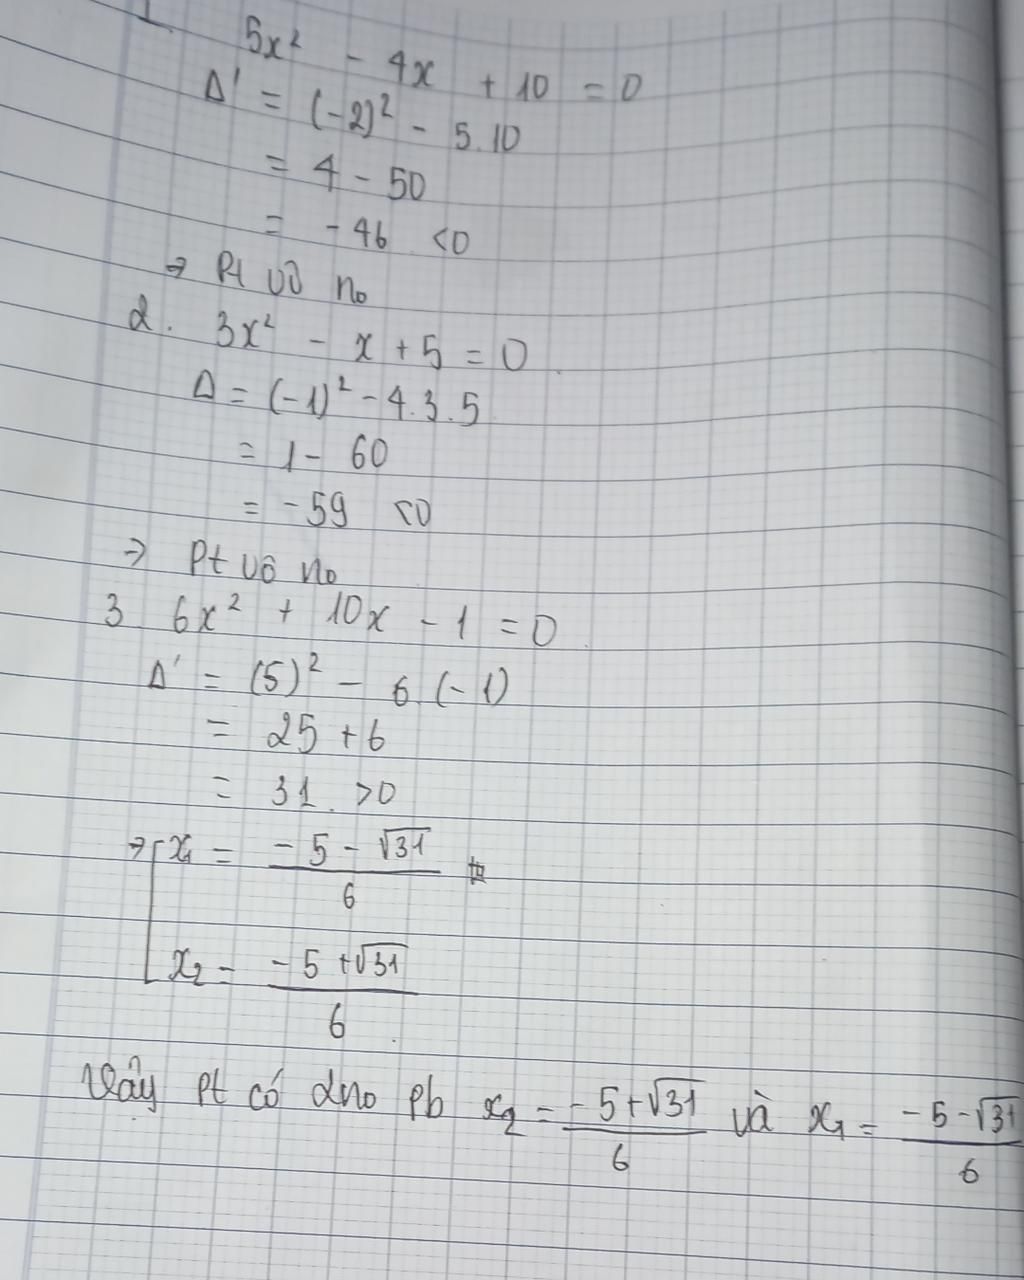 1. 5x² - 4x + 10 = 0
Δ' = (-2)² - 5.10
= 4 - 50
= -46 <0
⇒ Pt vô no
2. 3x² - x + 5 = 0
Δ = (-1)² - 4.3.5
= 1 - 60
= -59 <0
⇒ Pt vô no
3 6x² + 10x - 1 = 0
Δ' = (5)² - 6.(-1)
= 25 + 6
= 31 >0
⇒ [ x₁ = (-5 - √31) / 6
x₂ = (-5 + √31) / 6
Vậy pt có 2no pb x₂ = (-5 + √31) / 6 và x₁ = (-5 - √31) / 6